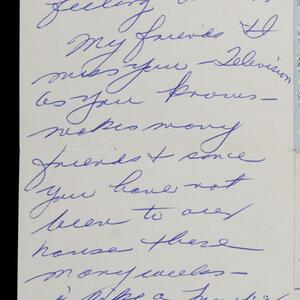 feeling
My friends & I
miss you - Television
as you know -
makes many
friends & since
you have not
been to our
house these
many weeks -